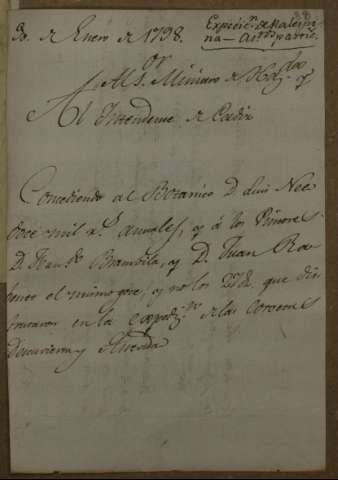 30. de Enero de 1798.
Expedic.n de Malespina — As.tos partic.s
Al S.r Ministro de Haz.da y
Al Intendente de Cadiz
Concediendo al Botanico D. Luis Nee
doce mil r.s anuales, y á los Pintores
D. Fern.do Brambila, y D. Juan Ra
benet el mismo goce, y no los 27 @. que dis
frutaron en la exped.on de las Corvetas
Descuvierta y Atrevida